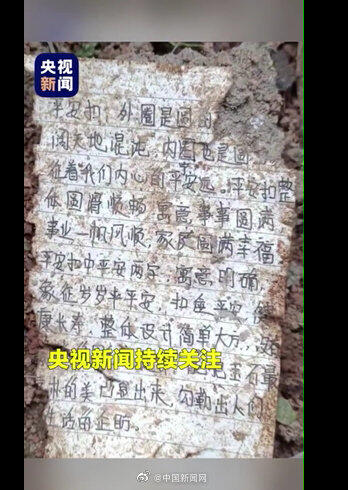 央视
新闻
平安扣，外圈是圆的
阔天地混沌，内圈也是圆
征着我们内心的平安远。平安扣整
体圆滑顺畅寓意，事事圆满
事业一帆风顺，家庭圆满幸福
平安扣中平安两字，寓意明确，
象征岁岁平平安，扣住平安健
康长寿，整体设计简单大方，
央视新闻持续关注
玉石最
朴的美凸显出来，勾勒出人们
生活的企盼。
@中国新闻网